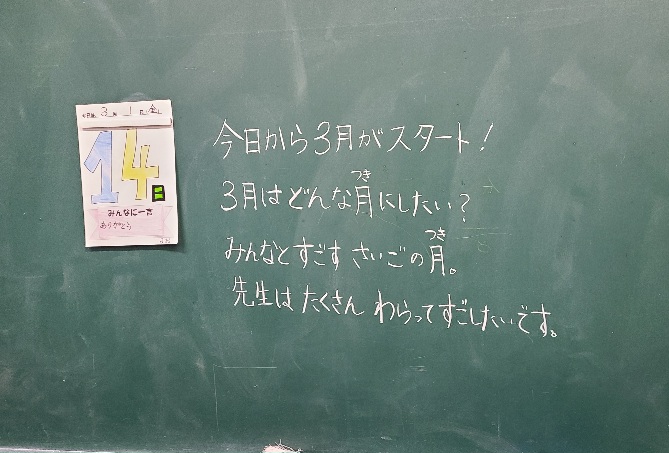 3月1日(金)
14日
みんなに一言
ありがとう
今日から3月がスタート!
3月はどんな月にしたい?
つき
みんなとすごすさいごの月。
つき
先生はたくさんわらってすごしたいです。